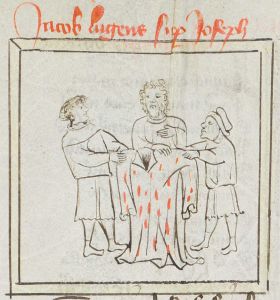 Jacob lugens sup Joseph